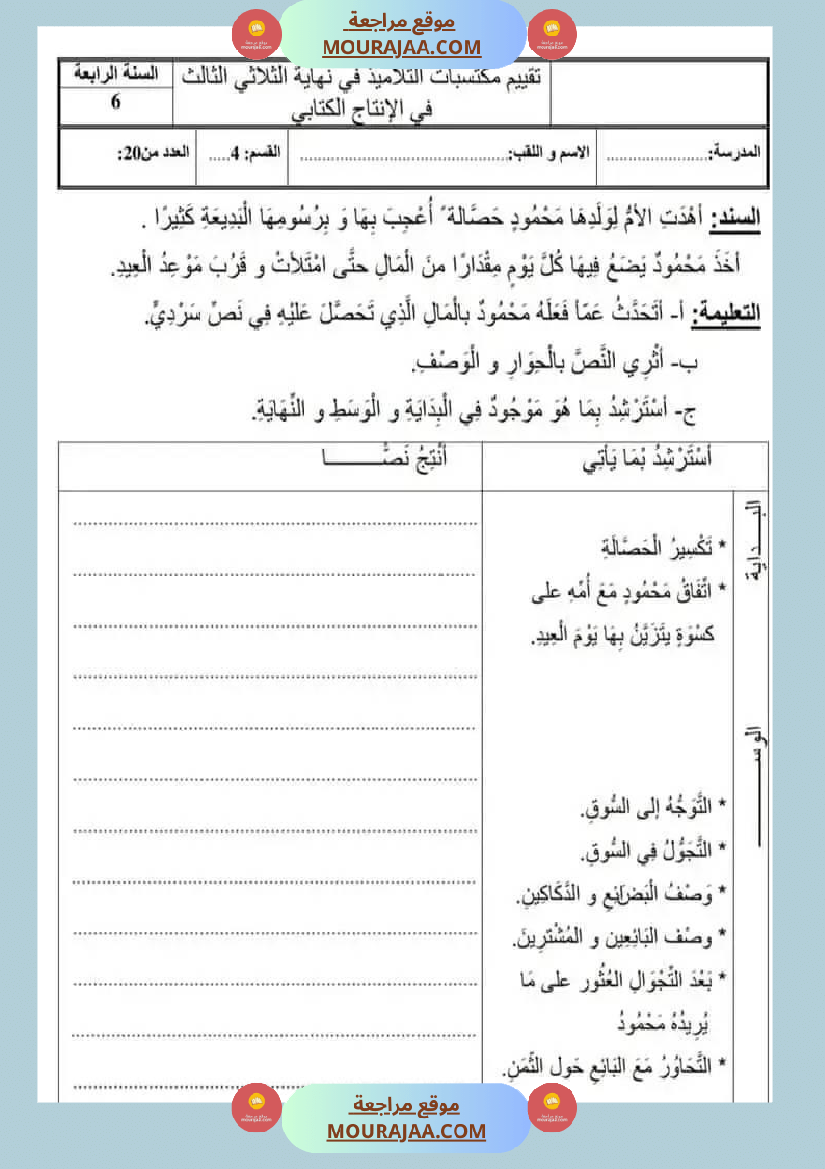 موقع مراجعة
MOURAJAA.COM
تقييم مكتسبات التلاميذ في نهاية الثلاثي الثالث
في الإنتاج الكتابي
السنة الرابعة
6
المدرسة:........................ الاسم و اللقب:................................................ القسم: 4..... العدد من20:
السند: أَهْدَتِ الأمُّ لِوَلَدِهَا مَحْمُودٍ حَصَّالة ً أُعْجِبَ بِهَا وَ بِرُسُومِهَا الْبَدِيعَةِ كَثِيرًا .
أَخَذَ مَحْمُودٌ يَضَعُ فِيهَا كُلَّ يَوْمٍ مِقْدَارًا منَ الْمَالِ حتَّى امْتَلأتْ و قَرُبَ مَوْعِدُ الْعِيدِ.
التعليمة: أ- أتَحَدَّثُ عَمَّا فَعَلَهُ مَحْمُودٌ بالْمَالِ الَّذِي تَحَصَّلَ عَلَيْهِ فِي نَصٍّ سَرْدِيٍّ.
ب- أثْرِي النَّصَّ بالْحِوَارِ و الْوَصْفِ.
ج- أسْتَرْشِدُ بِمَا هُوَ مَوْجُودٌ فِي الْبِدَايَةِ و الْوَسَطِ و النِّهَايَةِ.
أسْتَرْشِدُ بْمَا يَأتِي
أنْتِجُ نَصًّـــــــــا
البـــداية
* تَكْسِيرُ الْحَصَّالَةِ
* اتِّفَاقُ مَحْمُودٍ مَعَ أُمِّهِ على
كسْوَةٍ يتَزَيَّنُ بِهَا يَوْمَ الْعِيدِ.
الوســــــــــ
* التَّوَجُّهُ إلى السُّوقِ.
* التَّجَوُّلُ فِي السُّوقِ.
* وَصْفُ الْبَضَائِعِ و الدَّكَاكِينِ.
* وصْف البَائِعِين و المُشْتَرِينَ.
* بَعْدَ التِّجْوَالِ العُثُور على مَا
يُرِيدُهُ مَحْمُودُ
* التَّحَاوُرُ مَعَ البَائِعِ حَول الثَّمَنِ.
موقع مراجعة
MOURAJAA.COM